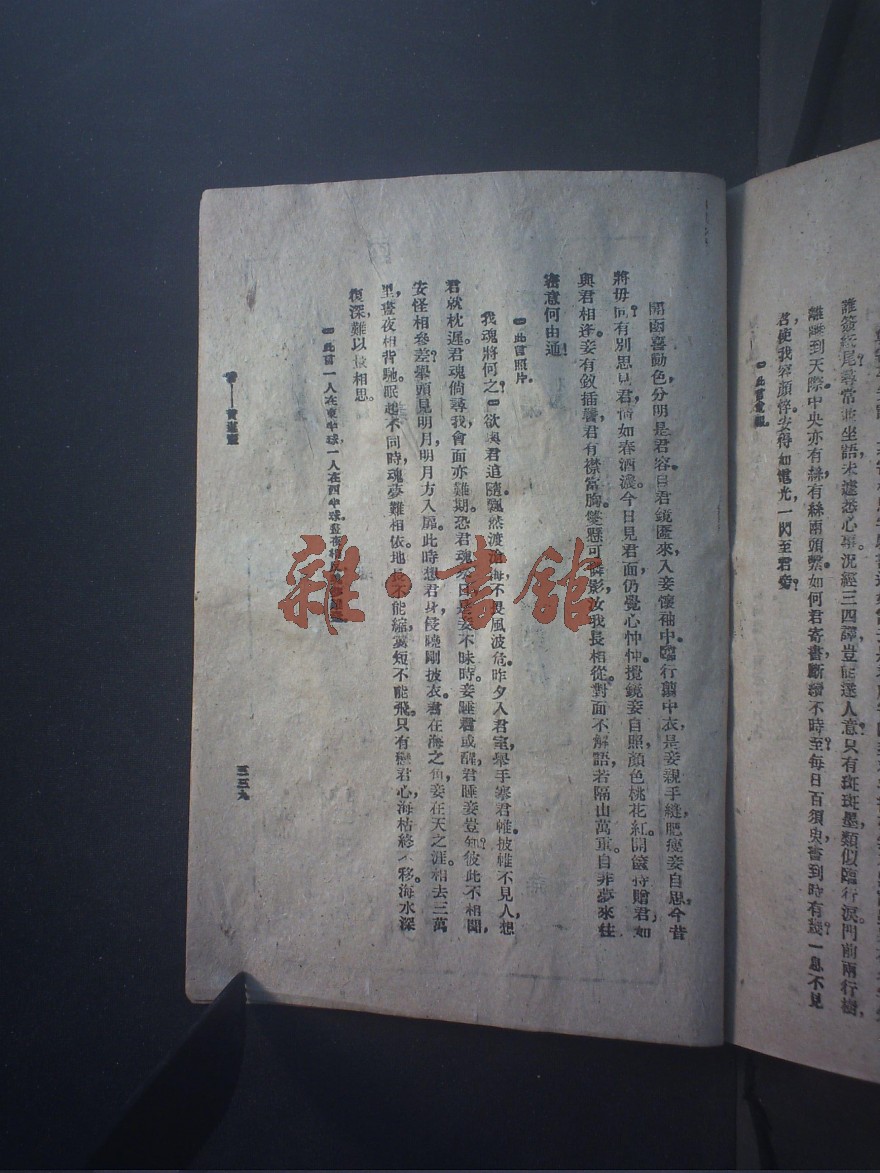 誰簽紙尾尋常並坐語未遽悉心事況經三四譯豈能達人意只有斑斑墨類似臨行淚門前兩行樹，
離離到天際。中央亦有絲有絲兩頭繫如何君寄書斷續不時至每日百須臾書到時有幾一息不見
君，使我容顏悴去得如電光，一閃至君旁
開函喜動色，分明是君容。自君鏡匳來，入妾懷袖中。臨行翦中衣，是妾親手縫，肥瘦妾自思，今昔
將毋同。有別思見君，情如春酒濃。今日見君面，仍覺心忡忡。攬鏡妾自照，顏色桃花紅。開篋持贈君，如
與君相逢。妾有釵插鬢，君有襟當胸。雙懸可憐影，汝我長相從。對面不解語，若隔山萬重。自非夢來往
密意何由通！
此言照片。
我魂將何之？欲與君追隨。飄然渡滄海，不畏風波危。昨夕入君室，舉手搴君帷。披帷不見人，想
君就枕遲。君魂倘尋我，會面亦難期。恐君魂來日，是妾不寐時。妾睡君或醒，君睡妾豈知？彼此不相聞，
安怪相參差？舉頭見明月，明月方入扉。此時想君身，侵曉剛披衣。君在海之角，妾在天之涯。相去三萬
里，晝夜相背馳。眠起不同時，魂夢難相依。地長不能縮，翼短不能飛。只有戀君心，海枯終不移。海水深
復深，難以量相思。
此言一人在東半球，一人在西半球，晝夜相反
黃遵憲
三三九
雜·書館